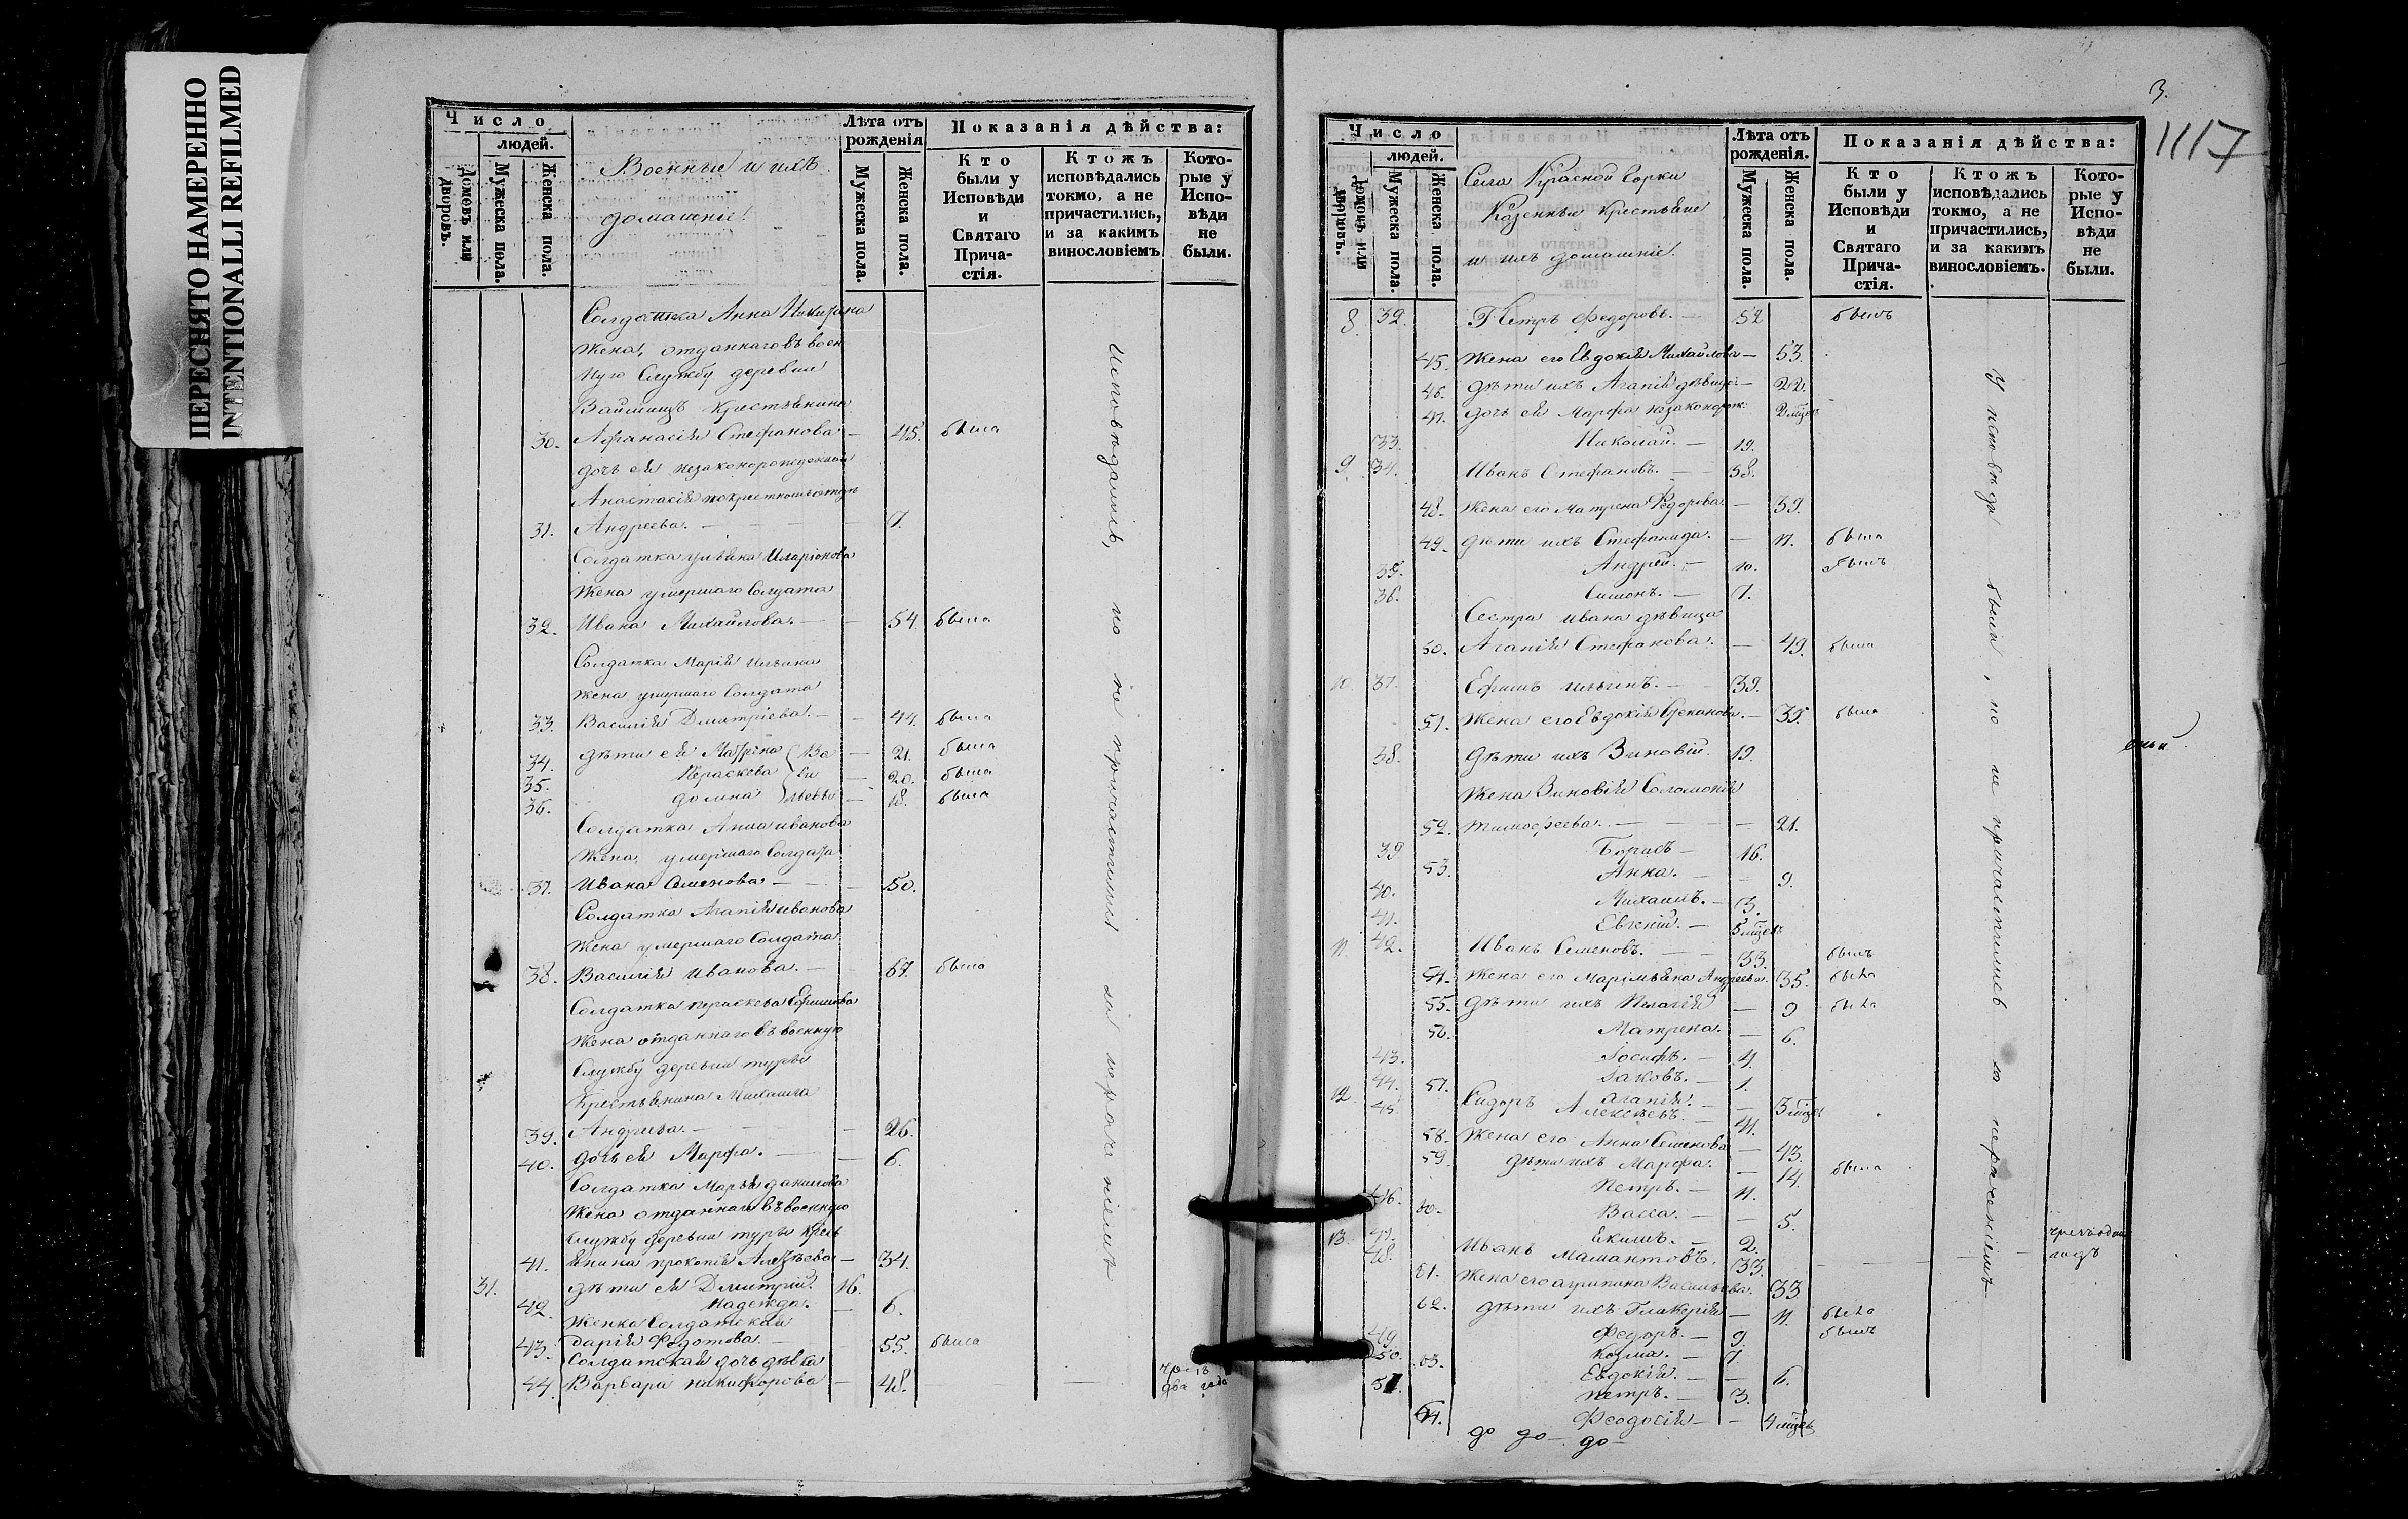 ПЕРЕСНЯТО НАМЕРЕННО
INTENTIONALLI REFILMED
Число
людей.
Домовъ или дворовъ.
Мужеска пола.
Женска пола.
Военные и ихъ
домашніе.
Лѣта отъ рожденія
Мужеска пола.
Женска пола.
Показанія дѣйства:
Кто были у Исповѣди и Святаго Прича-стія.
Ктожъ исповѣдались токмо, а не причастились, и за какимъ винословіемъ
Кото-рые у Испо-вѣди не были.
Солдатка Анна
Жена, отданнаго въ воен
ную Службу деревни
крестьянина
30. Афанасія Стефанова — 45. была
дочь ея незаконорожденная
Анастасія по
31. Андреева. — 7.
Солдатка Иларіонова
Жена умершаго Солдата
32. Ивана Михайлова. — 54 была
Солдатка Марія Ильина
жена умершаго Солдата
33. Василія Дмитріева. — 44. была
34. дѣти ея Матрена Ва — 21. была
35. Параскева си — 20. была
36. домна льевы — 18. была
Солдатка Анна иванова
Жена, умершаго Солдата
37. Ивана Семенова — 50.
Солдатка Агапія иванова
Жена умершаго Солдата
38. Василія Иванова. — 67. была
Солдатка параскева Ефимова
Жена отданнаго въ военную
Службу деревни турьи
Крестьянина Михаила
39. Андреева. — 26.
40. дочь ея Марфа. — 6.
Солдатка Марья данилова
Жена отданнаго въ военную
службу деревни турьи кресть
41. янина прокопія — 34.
31. дѣти ея Дмитрій. 16.
42. надежда. — 6.
Женка Солдатская
43. дарія Федотова. — 55. была
Солдатская дочь дѣвка
44. Варвара никифорова — 48. — —
два года
исповѣдались, но не причастились за нераченіемъ
3.
1117
Число
людей.
Домовъ или дворовъ.
Мужеска пола.
Женска пола.
Села Красной Горки
Казенные крестьяне
и ихъ домашніе.
Лѣта отъ рожденія.
Мужеска пола.
Женска пола.
Показанія дѣйства:
Кто были у Исповѣди и Святаго Прича-стія.
Ктожъ исповѣдались токмо, а не причастились, и за какимъ винословіемъ.
Кото-рые у Испо-вѣди не были.
8. 32. Петръ Федоровъ. — 52 былъ
45. Жена его Евдокія Михайлова — 53.
46. дѣти ихъ Агапія дѣвица — 22.
47. дочь ея Марфа незаконорож. 2 мѣсяц
33. Николай. — 19.
9. 34. Иванъ Стефановъ. — 38.
48. Жена его Матрена Федорова. — 39.
49. дѣти ихъ Стефанида. — 11. была
35. Андрей. — 10. былъ
36. Симонъ. — 7.
Сестра ивана дѣвица
50. Агапія Стефанова. — 49. была
10. 37. Ефимъ ильинъ. — 39.
51. Жена его Евдокія — 39. была
38. Дѣти ихъ Зиновій. 19.
Жена Зиновія Соломонія
52. тимофеева. — 21.
39 Борисъ — 16.
53. Анна. — 9.
40. Михаилъ. — 3.
41. Евгеній. — 5 мѣсяцъ
11. 42. Иванъ Семеновъ. — 33. былъ
54. Жена его Маріамьяна Андреева. 35. была
55. дѣти ихъ Пелагія — 9 была
56. Матрена. — 6.
43. Іосифъ. — 4.
44. Іаковъ. — 1.
57. агапія. — 3 мѣсяц
12. 45. Сидоръ Алексѣевъ — 41.
58. Жена его Анна Семенова — 43.
59. дѣти ихъ Марфа. — 14. была
46. Петръ. — 11.
60. Васса. — 5.
47. Екимъ. — 2.
13. 48. Иванъ Мамантовъ. 33.
годъ
61. Жена его агрипина Васильева. 33
62. дѣти ихъ Гликерія — 11. была
49 Федоръ. — 9. былъ
50. козма. — 7
63. Евдокія. — 6.
51. петръ. — 3.
64. Феодосія — 4 мѣсяц
до до — до —
У исповѣди были, но не причастились за нераченіемъ